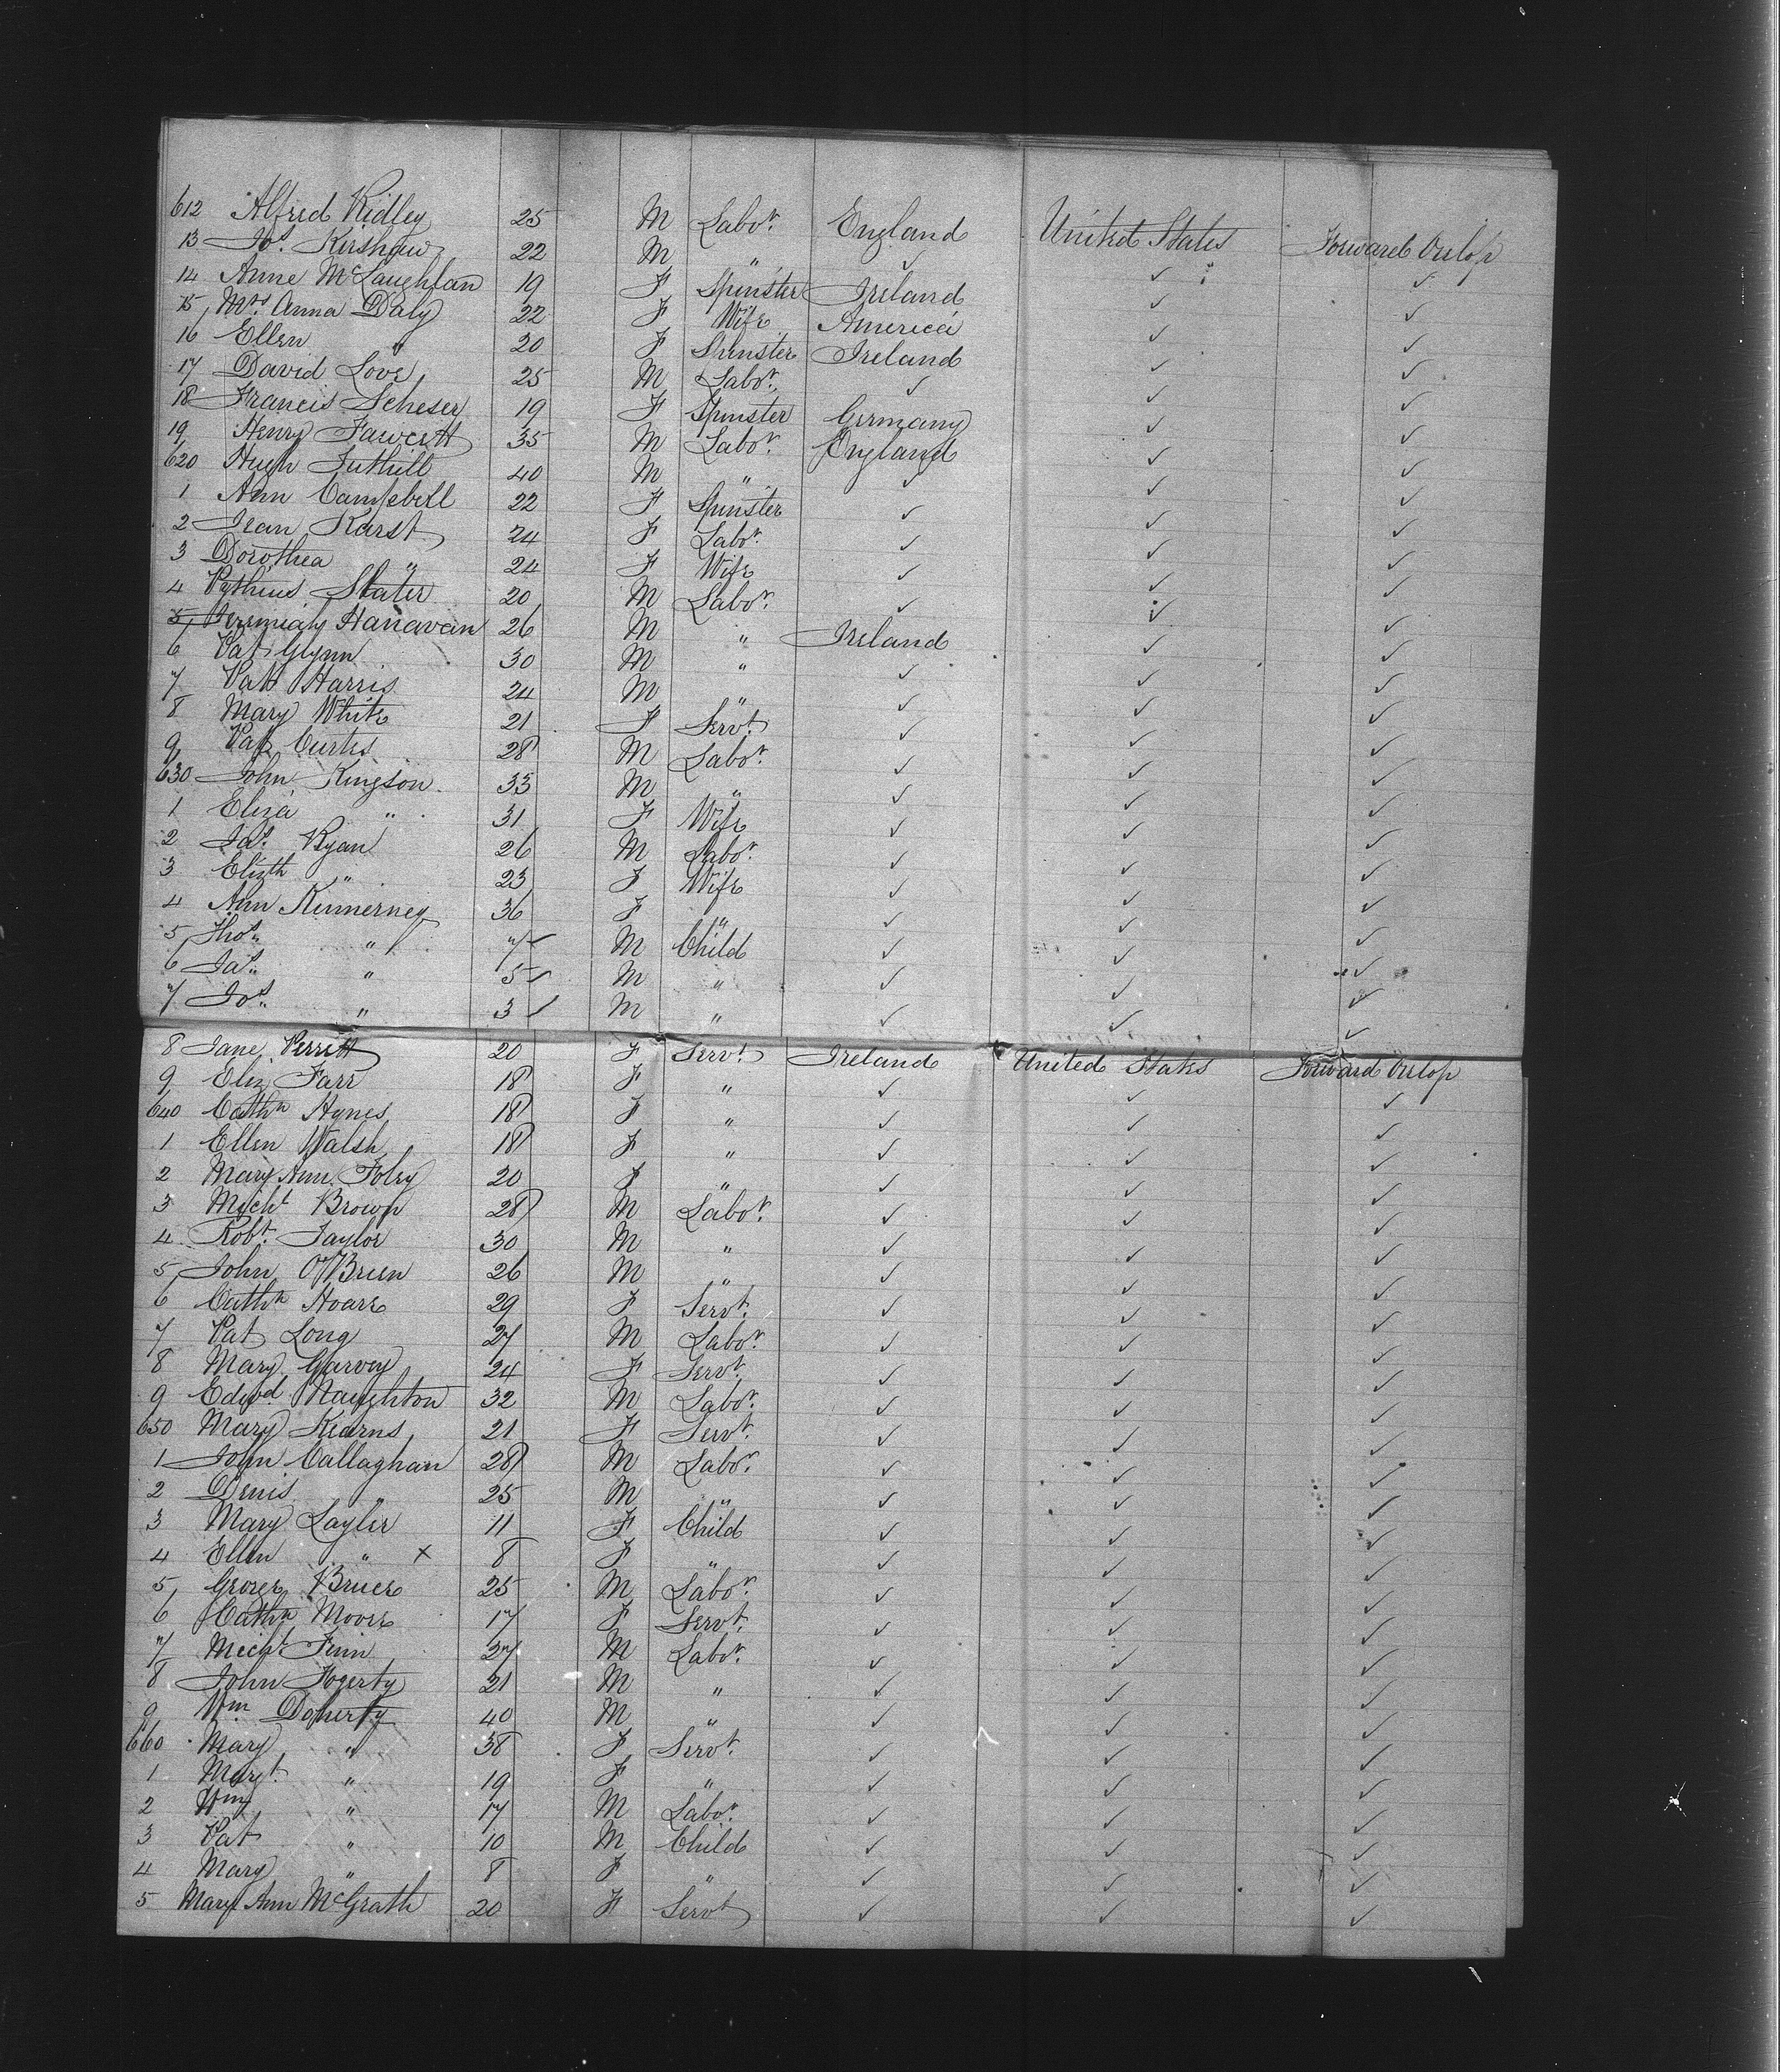 612 Alfred Ridley 25 M Labor. England United States Forward Orlop
13 Jos. Kirshaw 22 M " ✓ ✓ ✓
14 Anne McLaughlan 19 F Spinster Ireland ✓ ✓
15 Mrs. Anna Daly 22 F Wife America ✓ ✓
16 Ellen " 20 F Spinster Ireland ✓ ✓
17 David Love 25 M Labor. ✓ ✓ ✓
18 Francis Scheser 19 F Spinster Germany ✓ ✓
19 Henry Fawcett 35 M Labor. England ✓ ✓
620 Hugh Tuthill 40 M " ✓ ✓ ✓
1 Ann Campbell 22 F Spinster ✓ ✓ ✓
2 Jean Karst 24 F Labor. ✓ ✓ ✓
3 Dorothea " 24 F Wife ✓ ✓ ✓
4 Slater 20 M Labor. ✓ ✓ ✓
5 Jeremiah Hanavan 26 M " Ireland ✓ ✓
6 Pat Glynn 30 M " ✓ ✓ ✓
7 Patk Harris 24 M " ✓ ✓ ✓
8 Mary White 21 F Servt. ✓ ✓ ✓
9 Patk Curtis 28 M Labor. ✓ ✓ ✓
630 John Kingson 33 M " ✓ ✓ ✓
1 Eliza " 31 F Wife ✓ ✓ ✓
2 Jas. Ryan 26 M Labor. ✓ ✓ ✓
3 Elizth " 23 F Wife ✓ ✓ ✓
4 Ann Kennerney 36 F " ✓ ✓ ✓
5 Thos. " 7 M Child ✓ ✓ ✓
6 Jas. " 5 M " ✓ ✓ ✓
7 Jos. " 3 M " ✓ ✓ ✓
8 Jane Perrett 20 F Servt. Ireland United States Forward Orlop
9 Eliz Farr 18 F " ✓ ✓ ✓
640 Cathn Hynes 18 F " ✓ ✓ ✓
1 Ellen Walsh 18 F " ✓ ✓ ✓
2 Mary Ann Foley 20 F " ✓ ✓ ✓
3 Michl Brown 28 M Labor. ✓ ✓ ✓
4 Robt. Taylor 30 M " ✓ ✓ ✓
5 John O'Brien 26 M " ✓ ✓ ✓
6 Cathn Hoare 29 F Servt. ✓ ✓ ✓
7 Pat Long 27 M Labor. ✓ ✓ ✓
8 Mary Garvey 24 F Servt. ✓ ✓ ✓
9 Edwd. Naughton 32 M Labor. ✓ ✓ ✓
650 Mary Kearns 21 F Servt. ✓ ✓ ✓
1 John Callaghan 28 M Labor. ✓ ✓ ✓
2 Denis " 25 M " ✓ ✓ ✓
3 Mary Layler 11 F Child ✓ ✓ ✓
4 Ellen " × 8 F " ✓ ✓ ✓
5 George Bruce 25 M Labor. ✓ ✓ ✓
6 Cathn Moore 17 F Servt. ✓ ✓ ✓
7 Michl Finn 27 M Labor. ✓ ✓ ✓
8 John Fogerty 21 M " ✓ ✓ ✓
9 Wm Doherty 40 M " ✓ ✓ ✓
660 Mary " 38 F Servt. ✓ ✓ ✓
1 Margt. " 19 F " ✓ ✓ ✓
2 Wm " 17 M Labor. ✓ ✓ ✓
3 Pat " 10 M Child ✓ ✓ ✓
4 Mary " 8 F " ✓ ✓ ✓
5 Mary Ann McGrath 20 F Servt ✓ ✓ ✓